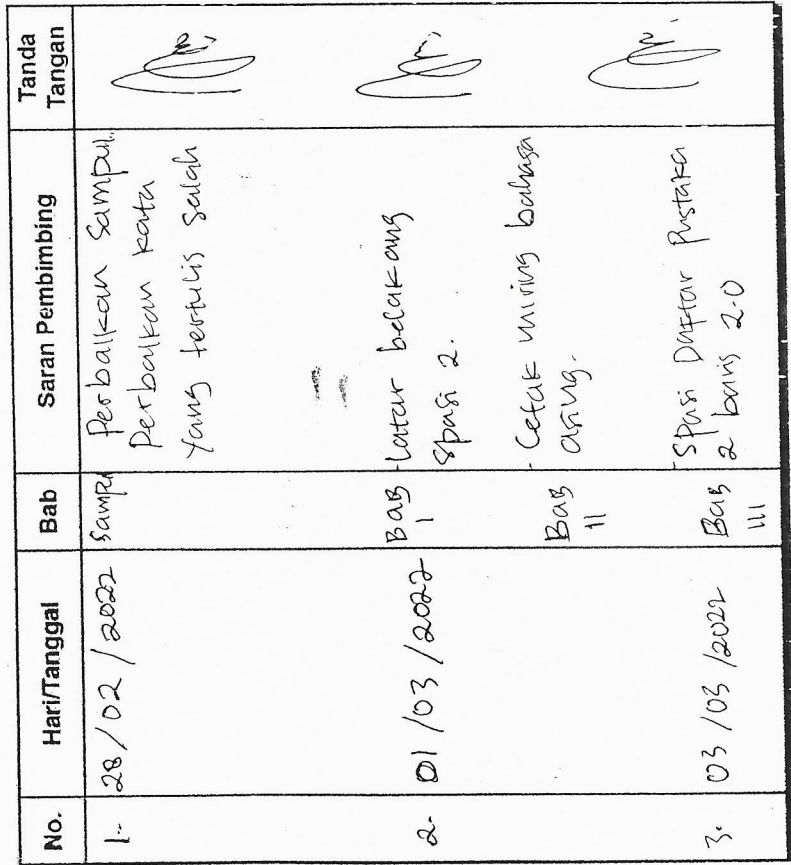 No. Hari/Tanggal Bab Saran Pembimbing Tanda Tangan
1. 28/02/2022 Sampul Perbaikan Sampul.
Perbaikan kata
yang tertulis salah
2. 01/03/2022 BAB I - Latar belakang
Spasi 2.
BAB II - Cetak miring bahasa
asing.
3. 03/03/2022 BAB III - Spasi Daftar Pustaka
2 baris 2.0